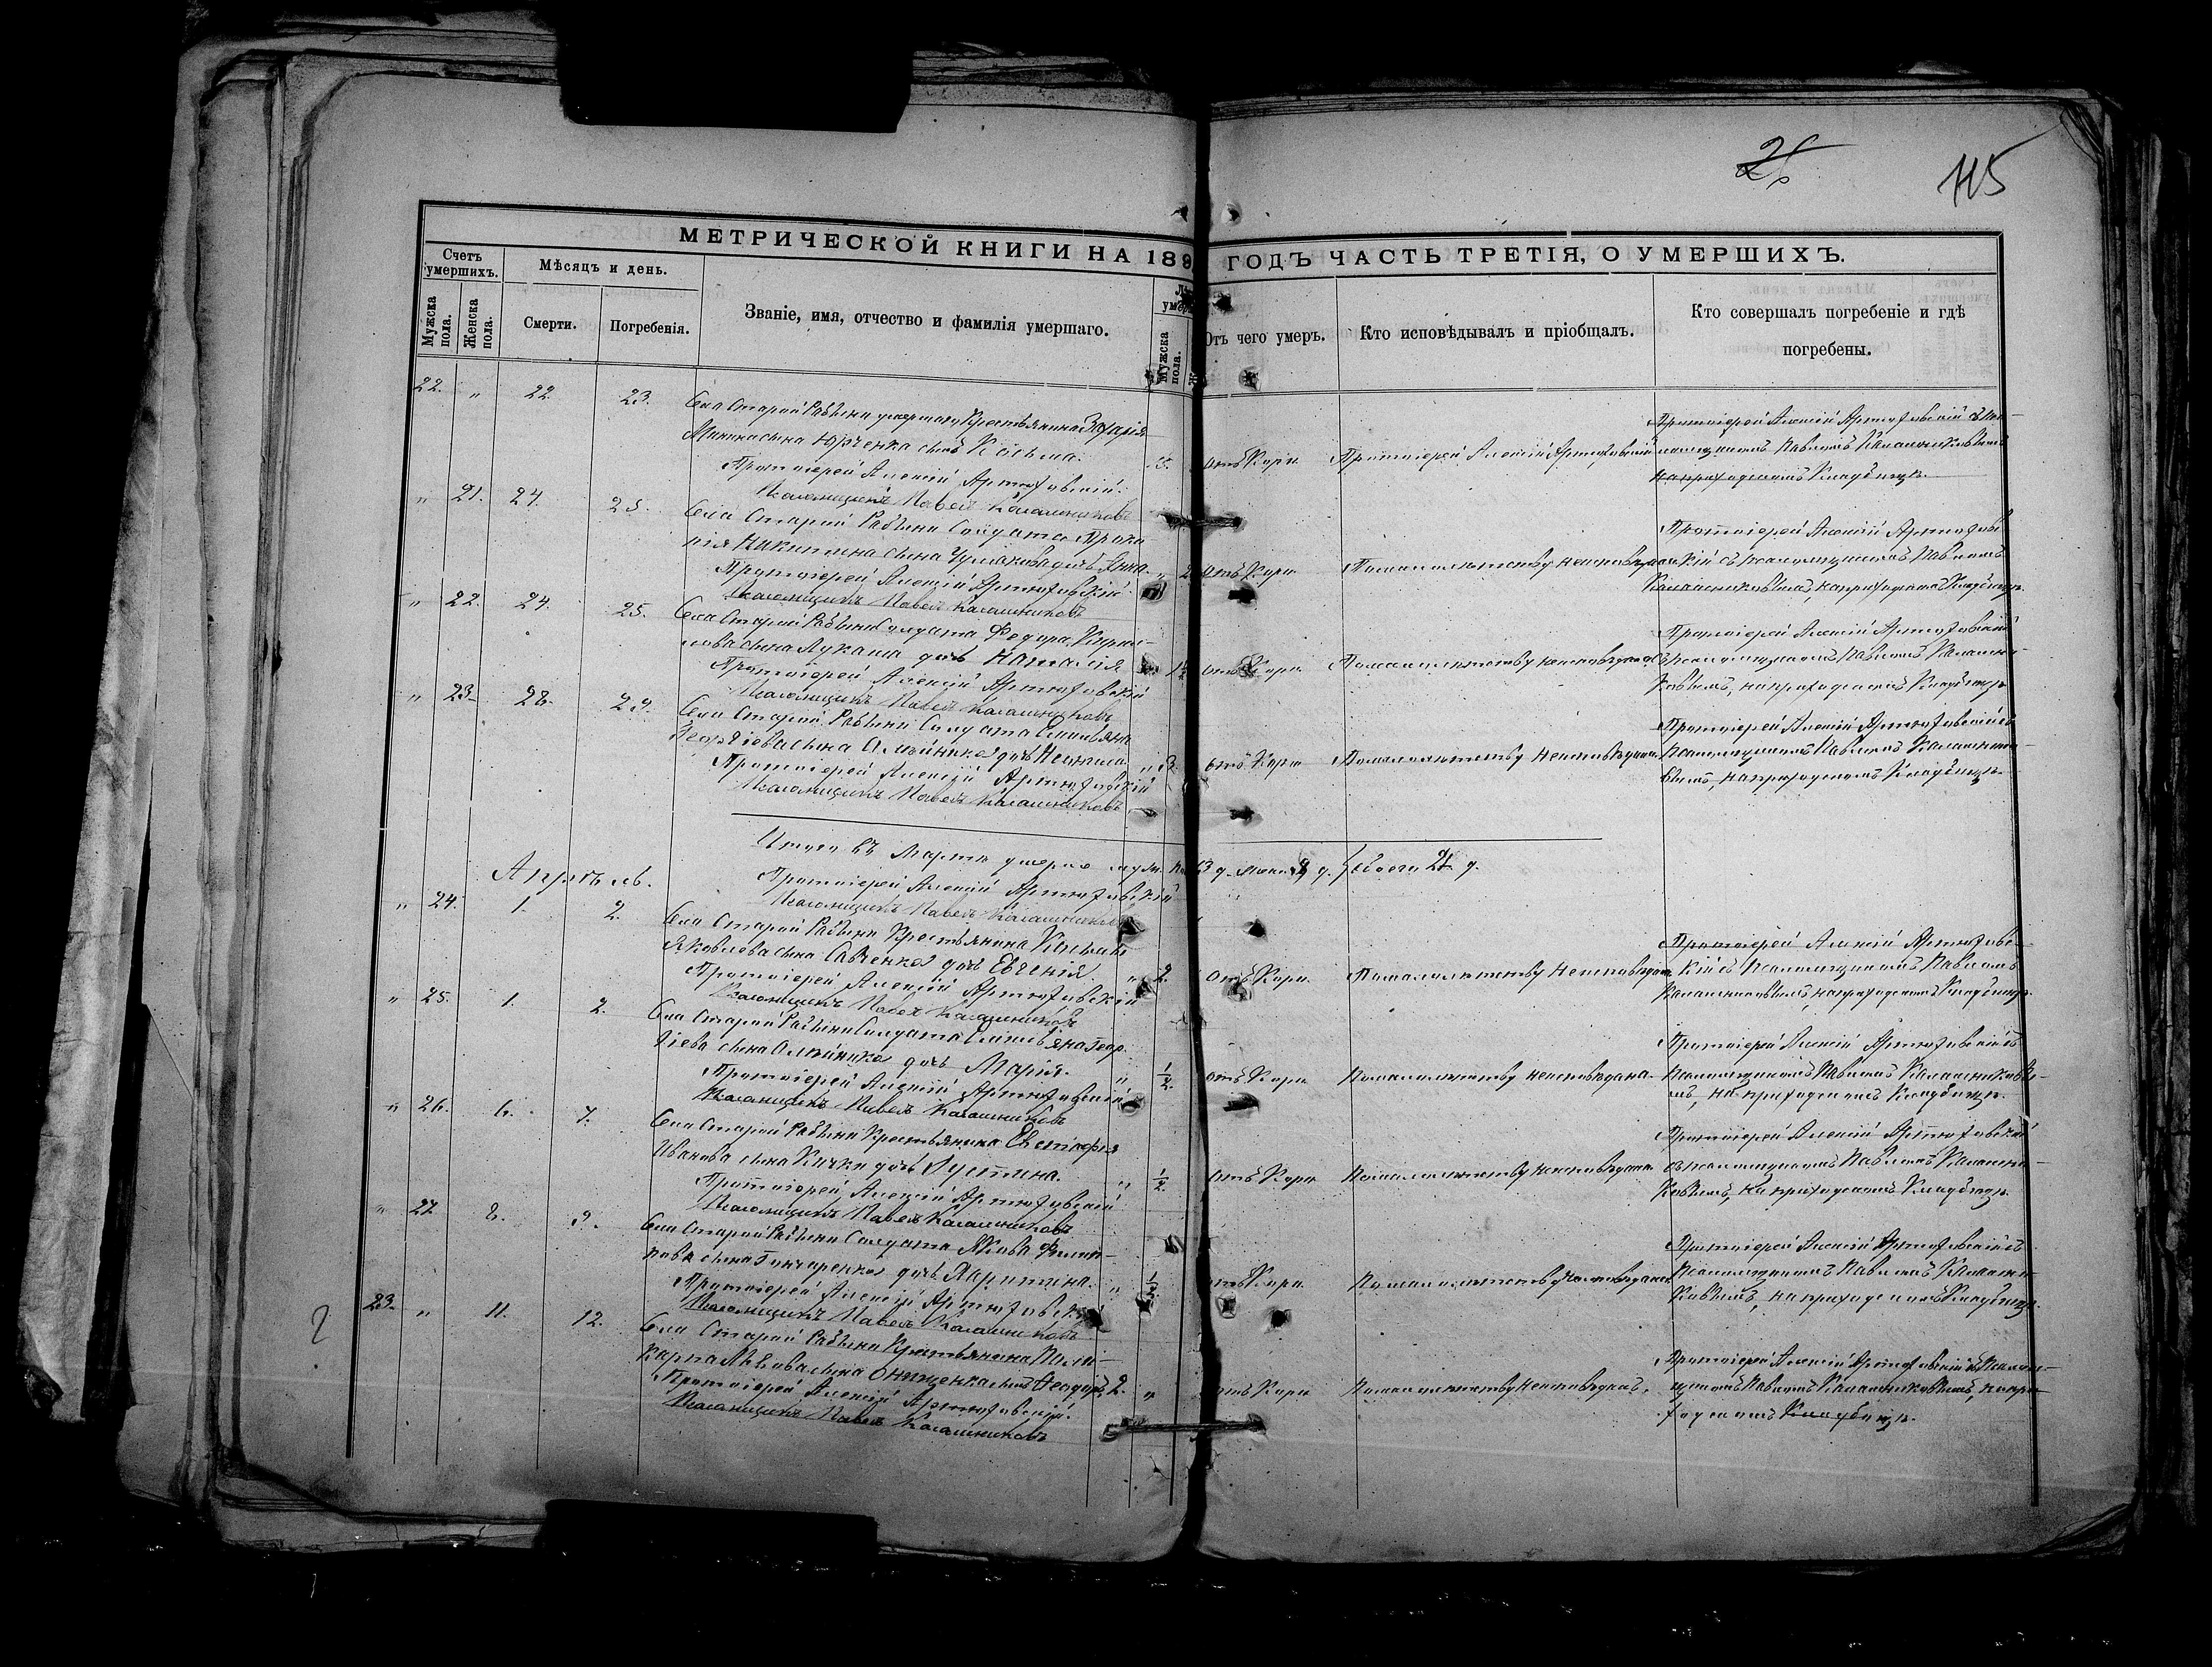 115
МЕТРИЧЕСКОЙ КНИГИ НА 189 ГОДЪ ЧАСТЬ ТРЕТІЯ, О УМЕРШИХЪ.
Счетъ умершихъ.
Мѣсяцъ и день.
Мужска пола.
Женска пола.
Смерти.
Погребенія.
Званіе, имя, отчество и фамилія умершаго.
Мужска пола.
Отъ чего умеръ.
Кто исповѣдывалъ и пріобщалъ.
Кто совершалъ погребеніе и гдѣ
погребены.
22. " 22 23.
Села Старой Рябины умершаго Крестьянина Захарія
сына Юрченка сынъ Косьма.
отъ Кори
Протоіерей Алексій Артюховскій
Протоіерей Алексій Артюховскій съ Пса-
ломщикомъ Павломъ Калашниковымъ
на приходскомъ Кладбищѣ.
Протоіерей Алексій Артюховскій.
Псаломщикъ Павелъ Калашниковъ
" 21. 24. 25.
Села Старой Рябины Солдата
сына дочь Анна.
отъ Кори
По малолѣтству неисповѣдана
Протоіерей Алексій Артюхов-
скій съ псаломщикомъ Павломъ
Калашниковымъ, на приходскомъ Кладбищѣ.
Протоіерей Алексій Артюховскій.
Псаломщикъ Павелъ Калашниковъ
" 22. 24. 25.
Села Старой Рябины Солдата Федора Кирил-
лова сына Лукаша дочь Наталія
отъ Кори
По малолѣтству неисповѣдана
Протоіерей Алексій Артюховскій
съ псаломщикомъ Павломъ Калашни-
ковымъ, на приходскомъ Кладбищѣ.
Протоіерей Алексій Артюховскій
Псаломщикъ Павелъ Калашниковъ
" 23. 28. 29.
Села Старой Рябины Солдата Емельяна
Георгіева сына Олейника дочь
" 3.
отъ Кори
По малолѣтству неисповѣдана
Протоіерей Алексій Артюховскій съ
Псаломщикомъ Павломъ Калашнико-
вымъ, на приходскомъ Кладбищѣ.
Протоіерей Алексій Артюховскій
Псаломщикъ Павелъ Калашниковъ
Итого въ Мартѣ умерло муж. п. 13 д.
Протоіерей Алексій Артюховскій
Псаломщикъ Павелъ Калашниковъ
Апрѣль.
" 24. 1. 2.
Села Старой Рябины Крестьянина
Яковлева сына Савченка дочь Евгенія
" 2.
отъ Кори
По малолѣтству неисповѣдана
Протоіерей Алексій Артюховс-
кій съ Псаломщикомъ Павломъ
Калашниковымъ, на приходскомъ Кладбищѣ.
Протоіерей Алексій Артюховскій
Псаломщикъ Павелъ Калашниковъ
" 25. 1. 2.
Села Старой Рябины Солдата Емельяна Геор-
гіева сына Олейника дочь Марія.
" 1/2.
отъ Кори
По малолѣтству неисповѣдана.
Протоіерей Алексій Артюховскій съ
Псаломщикомъ Павломъ Калашниковы-
мъ, на приходскомъ Кладбищѣ.
Протоіерей Алексій Артюховскій
Псаломщикъ Павелъ Калашниковъ
" 26. 6. 7.
Села Старой Рябины Крестьянина
Иванова сына дочь Іустина.
" 1/2.
отъ Кори
По малолѣтству неисповѣдана
Протоіерей Алексій Артюховскій
съ псаломщикомъ Павломъ Калашни-
ковымъ, на приходскомъ Кладбищѣ.
Протоіерей Алексій Артюховскій
Псаломщикъ Павелъ Калашниковъ
" 27 8. 9.
Села Старой Рябины Солдата Якова Филип-
пова сына Гончаренка дочь Харитина.
" 1/2.
отъ Кори
По малолѣтству неисповѣдана
Протоіерей Алексій Артюховскій съ
Псаломщикомъ Павломъ Калашни-
ковымъ, на приходскомъ Кладбищѣ.
Протоіерей Алексій Артюховскій
Псаломщикъ Павелъ Калашниковъ
23. " 11. 12.
Села Старой Рябины Крестьянина Поли-
карпа сына Онищенка сынъ Феодоръ 2. "
отъ Кори
По малолѣтству неисповѣданъ.
Протоіерей Алексій Артюховскій съ Псалом-
щикомъ Павломъ Калашниковымъ, на при-
ходскомъ Кладбищѣ.
Протоіерей Алексій Артюховскій.
Псаломщикъ Павелъ Калашниковъ